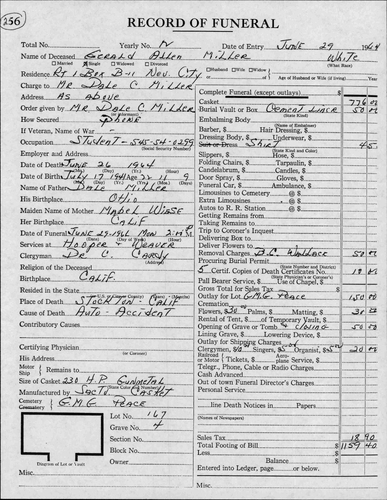 256
RECORD OF FUNERAL
Total No. Yearly No. N Date of Entry JUNE 29 1964
Name of Deceased GERALD Allen MILLER White
Married Single Widowed Divorced Husband Wife Widow (What Race)
Residence RT 1 Box B-11 Nev. City Age of Husband or Wife (if living) Year
Charge to MR DALE C. MILLER
Address AS ABOVE
Order given by MR DALE C. MILLER
How Secured PHONE
If Veteran, Name of War -
Occupation STUDENT - 545-54-0299
(Social Security Number)
Employer and Address
Date of Death JUNE 26 1964
Date of Birth JULY 17 1941 Age 22 11 9
Name of Father DALE MILLER
His Birthplace OHIO
Maiden Name of Mother MABEL WISSE
Her Birthplace CALIF
Date of Funeral JUNE-29-1964 MON. 2:
Services at HOOPER & WEAVER
Clergyman DR C.
Religion of the Deceased
Birthplace CALIF.
Resided in the State
Place of Death STOCKTON - CALIF
Cause of Death AUTO - ACCIDENT
Contributory Causes
Certifying Physician
(or Coroner)
His Address
Motor Ship
Remains to
Size of Casket 230 H.P. GUNMETAL
(State Color and Number)
Manufactured by SACTO CASKET
Cemetery Crematory G.M.G. PEACE
Lot No. 167
Grave No. 4
Section No.
Block No.
Owner
Diagram of Lot or Vault
Misc.
Complete Funeral (except outlays) $
Casket 776 00
Burial Vault or Box CEMENT LINER 50 00
(State Kind)
Embalming Body
Barber, $ Hair Dressing, $
Dressing Body, $ Underwear, $
Suit or Dress SHIRT 45
(State Kind and Color)
Slippers, $ Hose, $
Folding Chairs, $ Tarpaulin, $
Candelabrum, $ Candles, $
Door Spray, $ Gloves, $
Funeral Car, $ Ambulance, $
Limousines to Cemetery @ $
Extra Limousines @ $
Autos to R. R. Station @ $
Getting Remains from
Taking Remains to
Trip to Coroner's Inquest
Delivering Box to
Deliver Flowers to
Removal Charges B.C. WALLACE 50 00
(State Number and District)
Procuring Burial Permit
5 Certif. Copies of Death Certificates No.
(State Physician's or Coroner's)
Pall Bearer Service Use of Chapel, $
Gross Total for Sales Tax $
Outlay for Lot G.M.G. PEACE 150 00
Cremation
Flowers, $30 Palms, $ Matting, $ 30 00
Rental of Tent, $ of Temporary Vault, $
Opening of Grave or Tomb & CLOSING 50 00
Lining Grave, $ Lowering Device, $
Outlay for Shipping Charges
Clergymen, $ Singers, $ Organist, $ 20 00
Railroad or Motor Tickets, $ Aeroplane Service, $
Telegr., Phone, Cable or Radio Charges
Cash Advanced
Out of town Funeral Director's Charges
Personal Service
(Names of Newspapers)
line Death Notices in Papers
Sales Tax 18 90
Total Footing of Bill $ 1159 40
Less
Balance $
Entered into Ledger, page or below.
Misc.